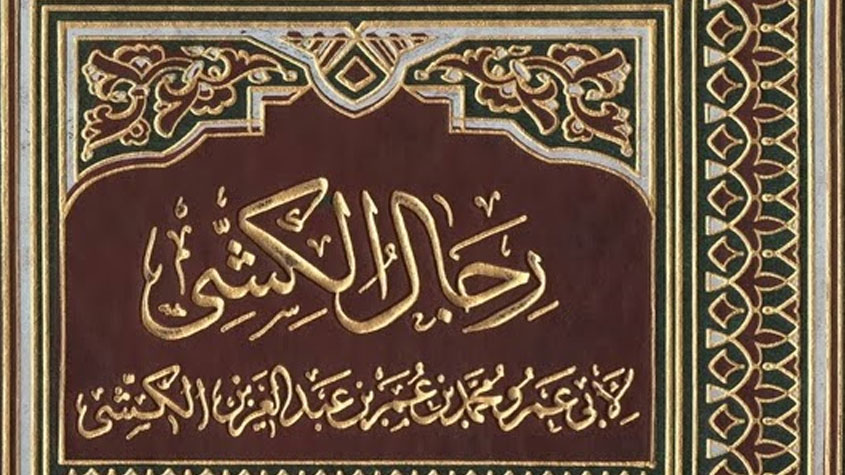 رِجَالُ الكِشِّى
لِأَبى عَمرو مُحمّد بن عُمَر بن عَبد العَزيز الكَشّى